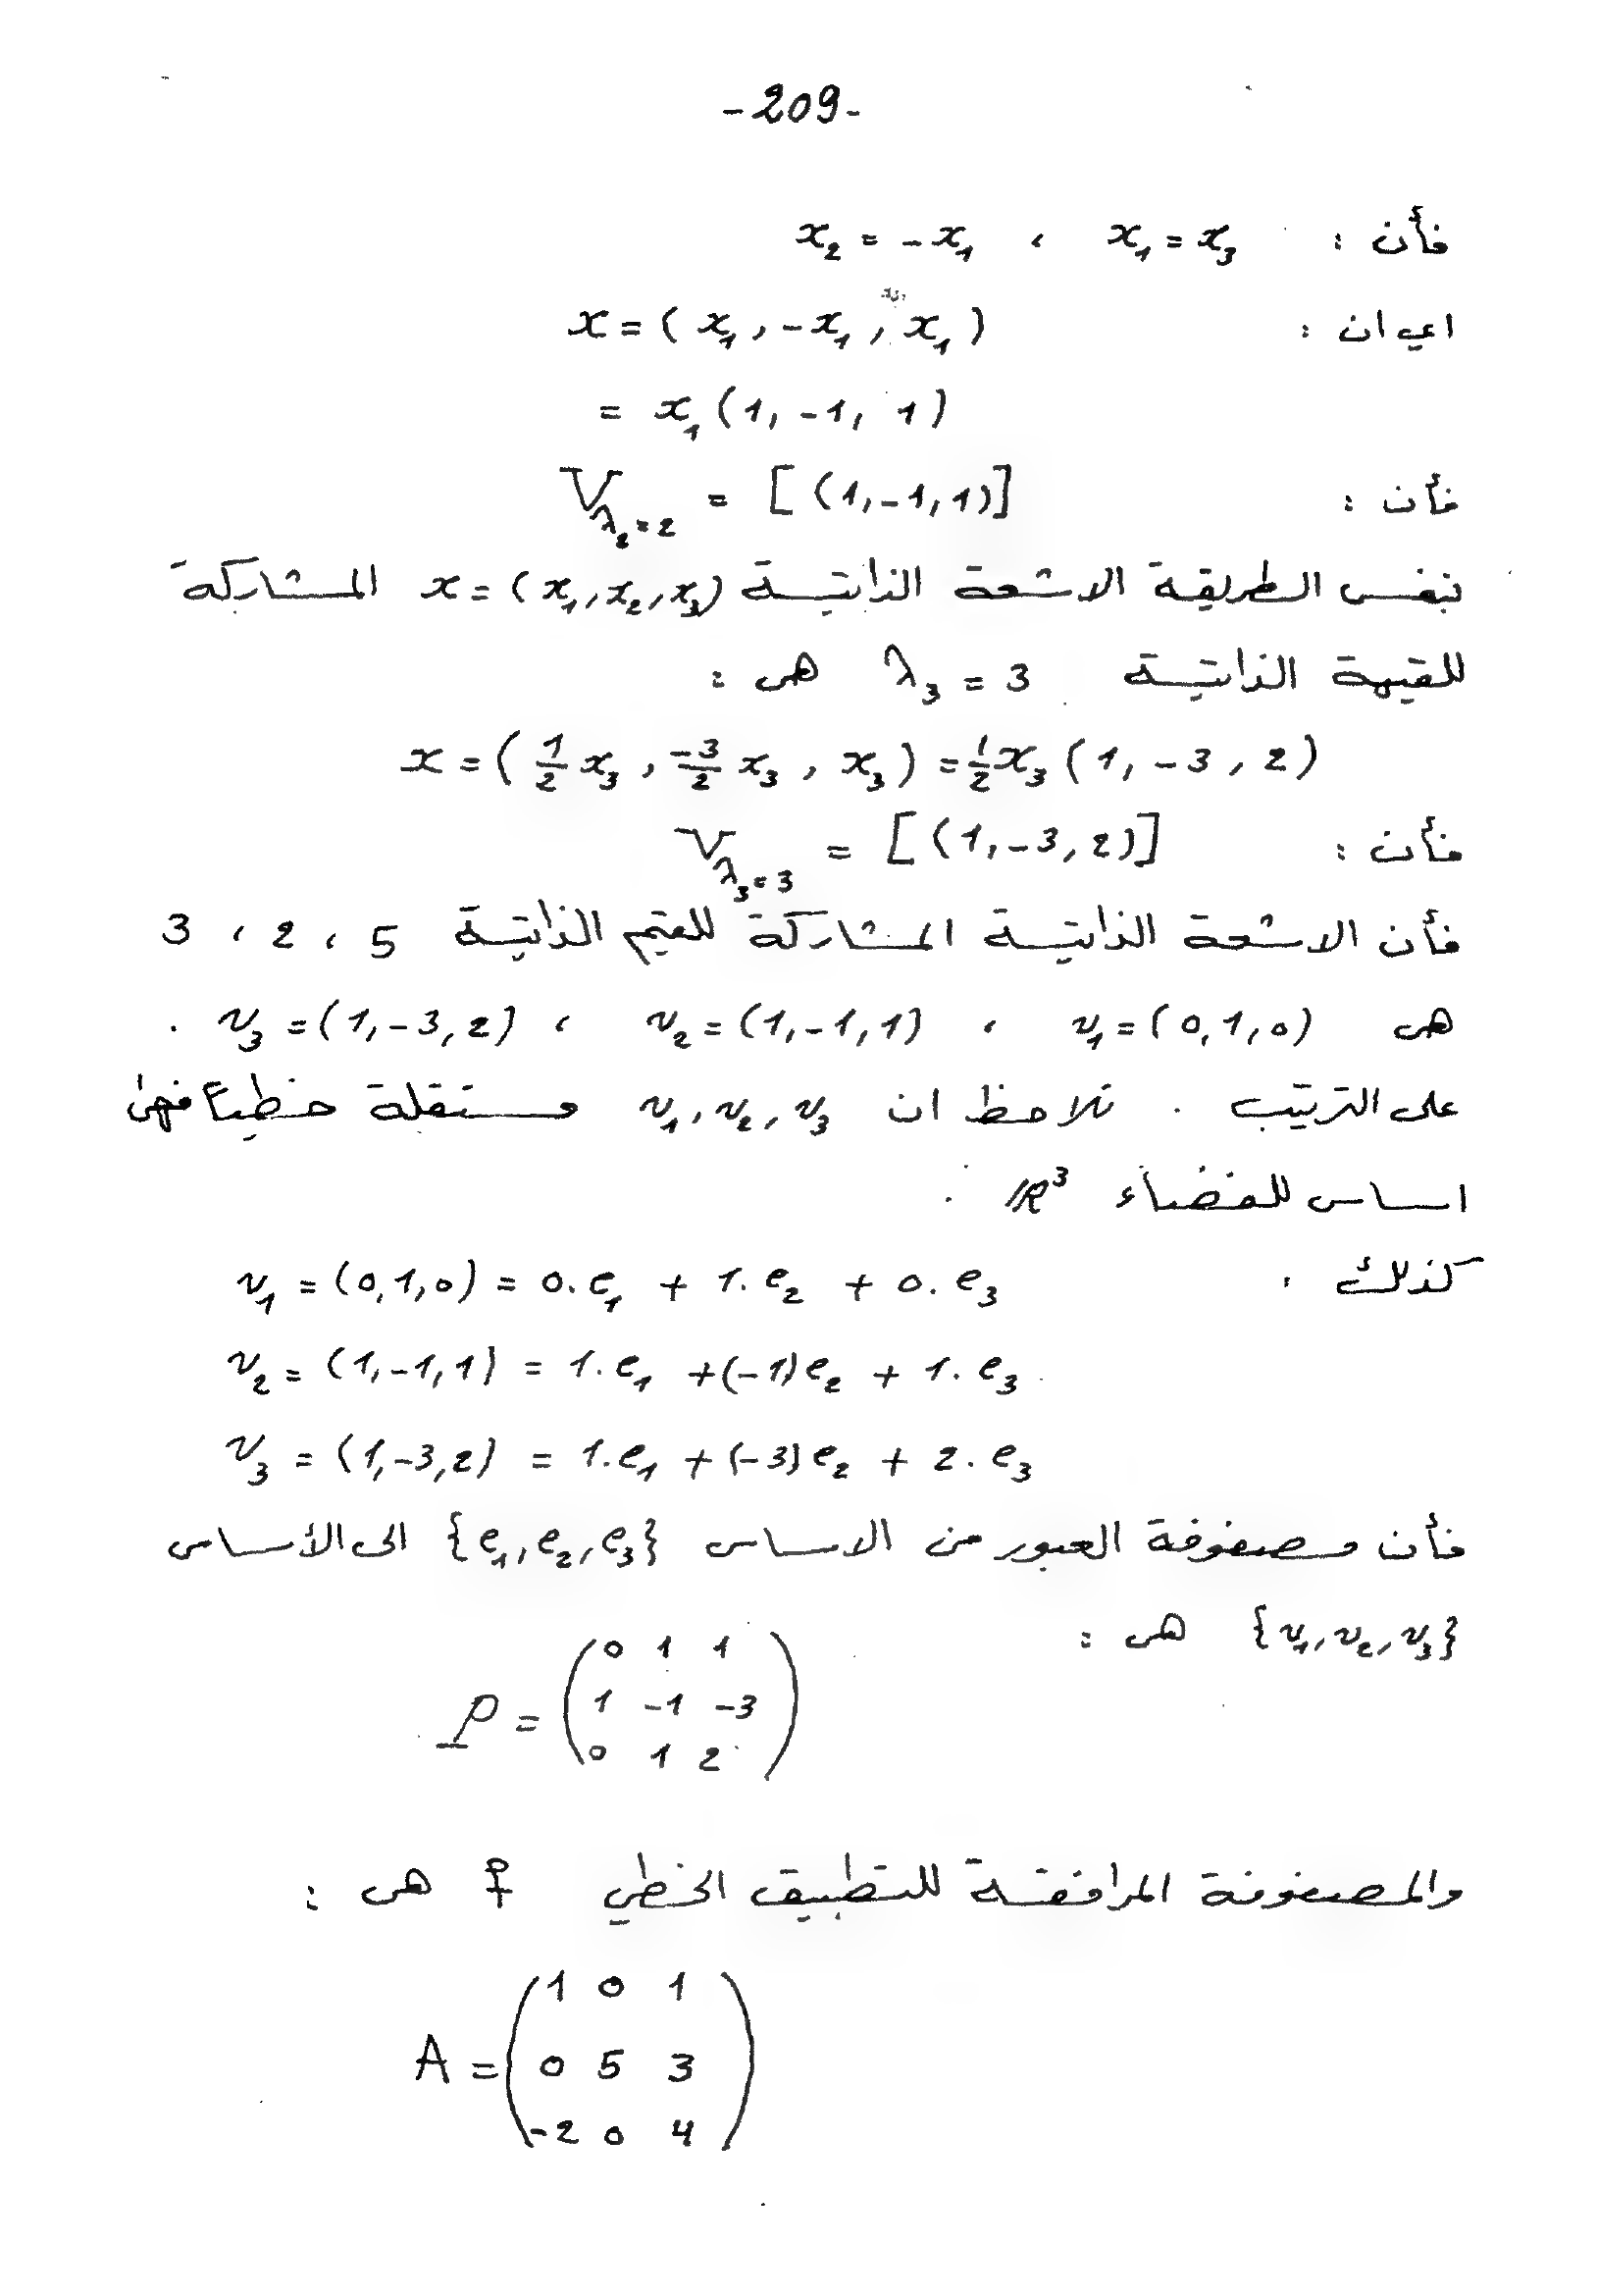 -209-
فأن : x₁ = x₃ ، x₂ = -x₁
اي ان : x = ( x₁ , -x₁ , x₁ )
= x₁ (1, -1, 1)
فأن : V_{λ₂=2} = [(1,-1,1)]
بنفس الطريقة الاشعة الذاتية x = (x₁, x₂, x₃) المشاركة
للقيمة الذاتية λ₃ = 3 هى :
x = ( \frac{1}{2} x₃ , \frac{-3}{2} x₃ , x₃ ) = \frac{1}{2} x₃ (1, -3, 2)
فأن : V_{λ₃=3} = [(1,-3,2)]
فأن الاشعة الذاتية المشاركة للقيم الذاتية 5 ، 2 ، 3
هى v₁ = (0,1,0) ، v₂ = (1,-1,1) ، v₃ = (1,-3,2) .
على الترتيب . نلاحظ ان v₁, v₂, v₃ مستقلة خطياً فهى
اساس للفضاء ℝ³ .
كذلك : v₁ = (0,1,0) = 0.e₁ + 1.e₂ + 0.e₃
v₂ = (1,-1,1) = 1.e₁ +(-1)e₂ + 1.e₃
v₃ = (1,-3,2) = 1.e₁ +(-3)e₂ + 2.e₃
فأن مصفوفة العبور من الاساس {e₁, e₂, e₃} الى الأساس
{v₁, v₂, v₃} هى :
P = \begin{pmatrix} 0 & 1 & 1 \\ 1 & -1 & -3 \\ 0 & 1 & 2 \end{pmatrix}
والمصفوفة المرافقة للتطبيق الخطي f هى :
A = \begin{pmatrix} 1 & 0 & 1 \\ 0 & 5 & 3 \\ -2 & 0 & 4 \end{pmatrix}